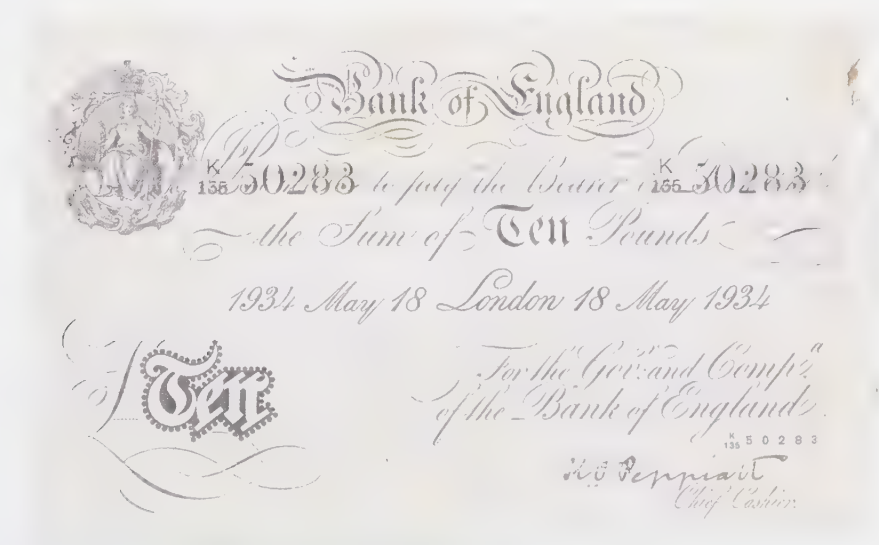 Bank of England
K
135 50283 to pay the Bearer K
135 50283
the Sum of Ten Pounds
1934 May 18 London 18 May 1934
For the Govr. and Compa.
of the Bank of England
£Ten
K
135 50283
K O Peppiatt
Chief Cashier.